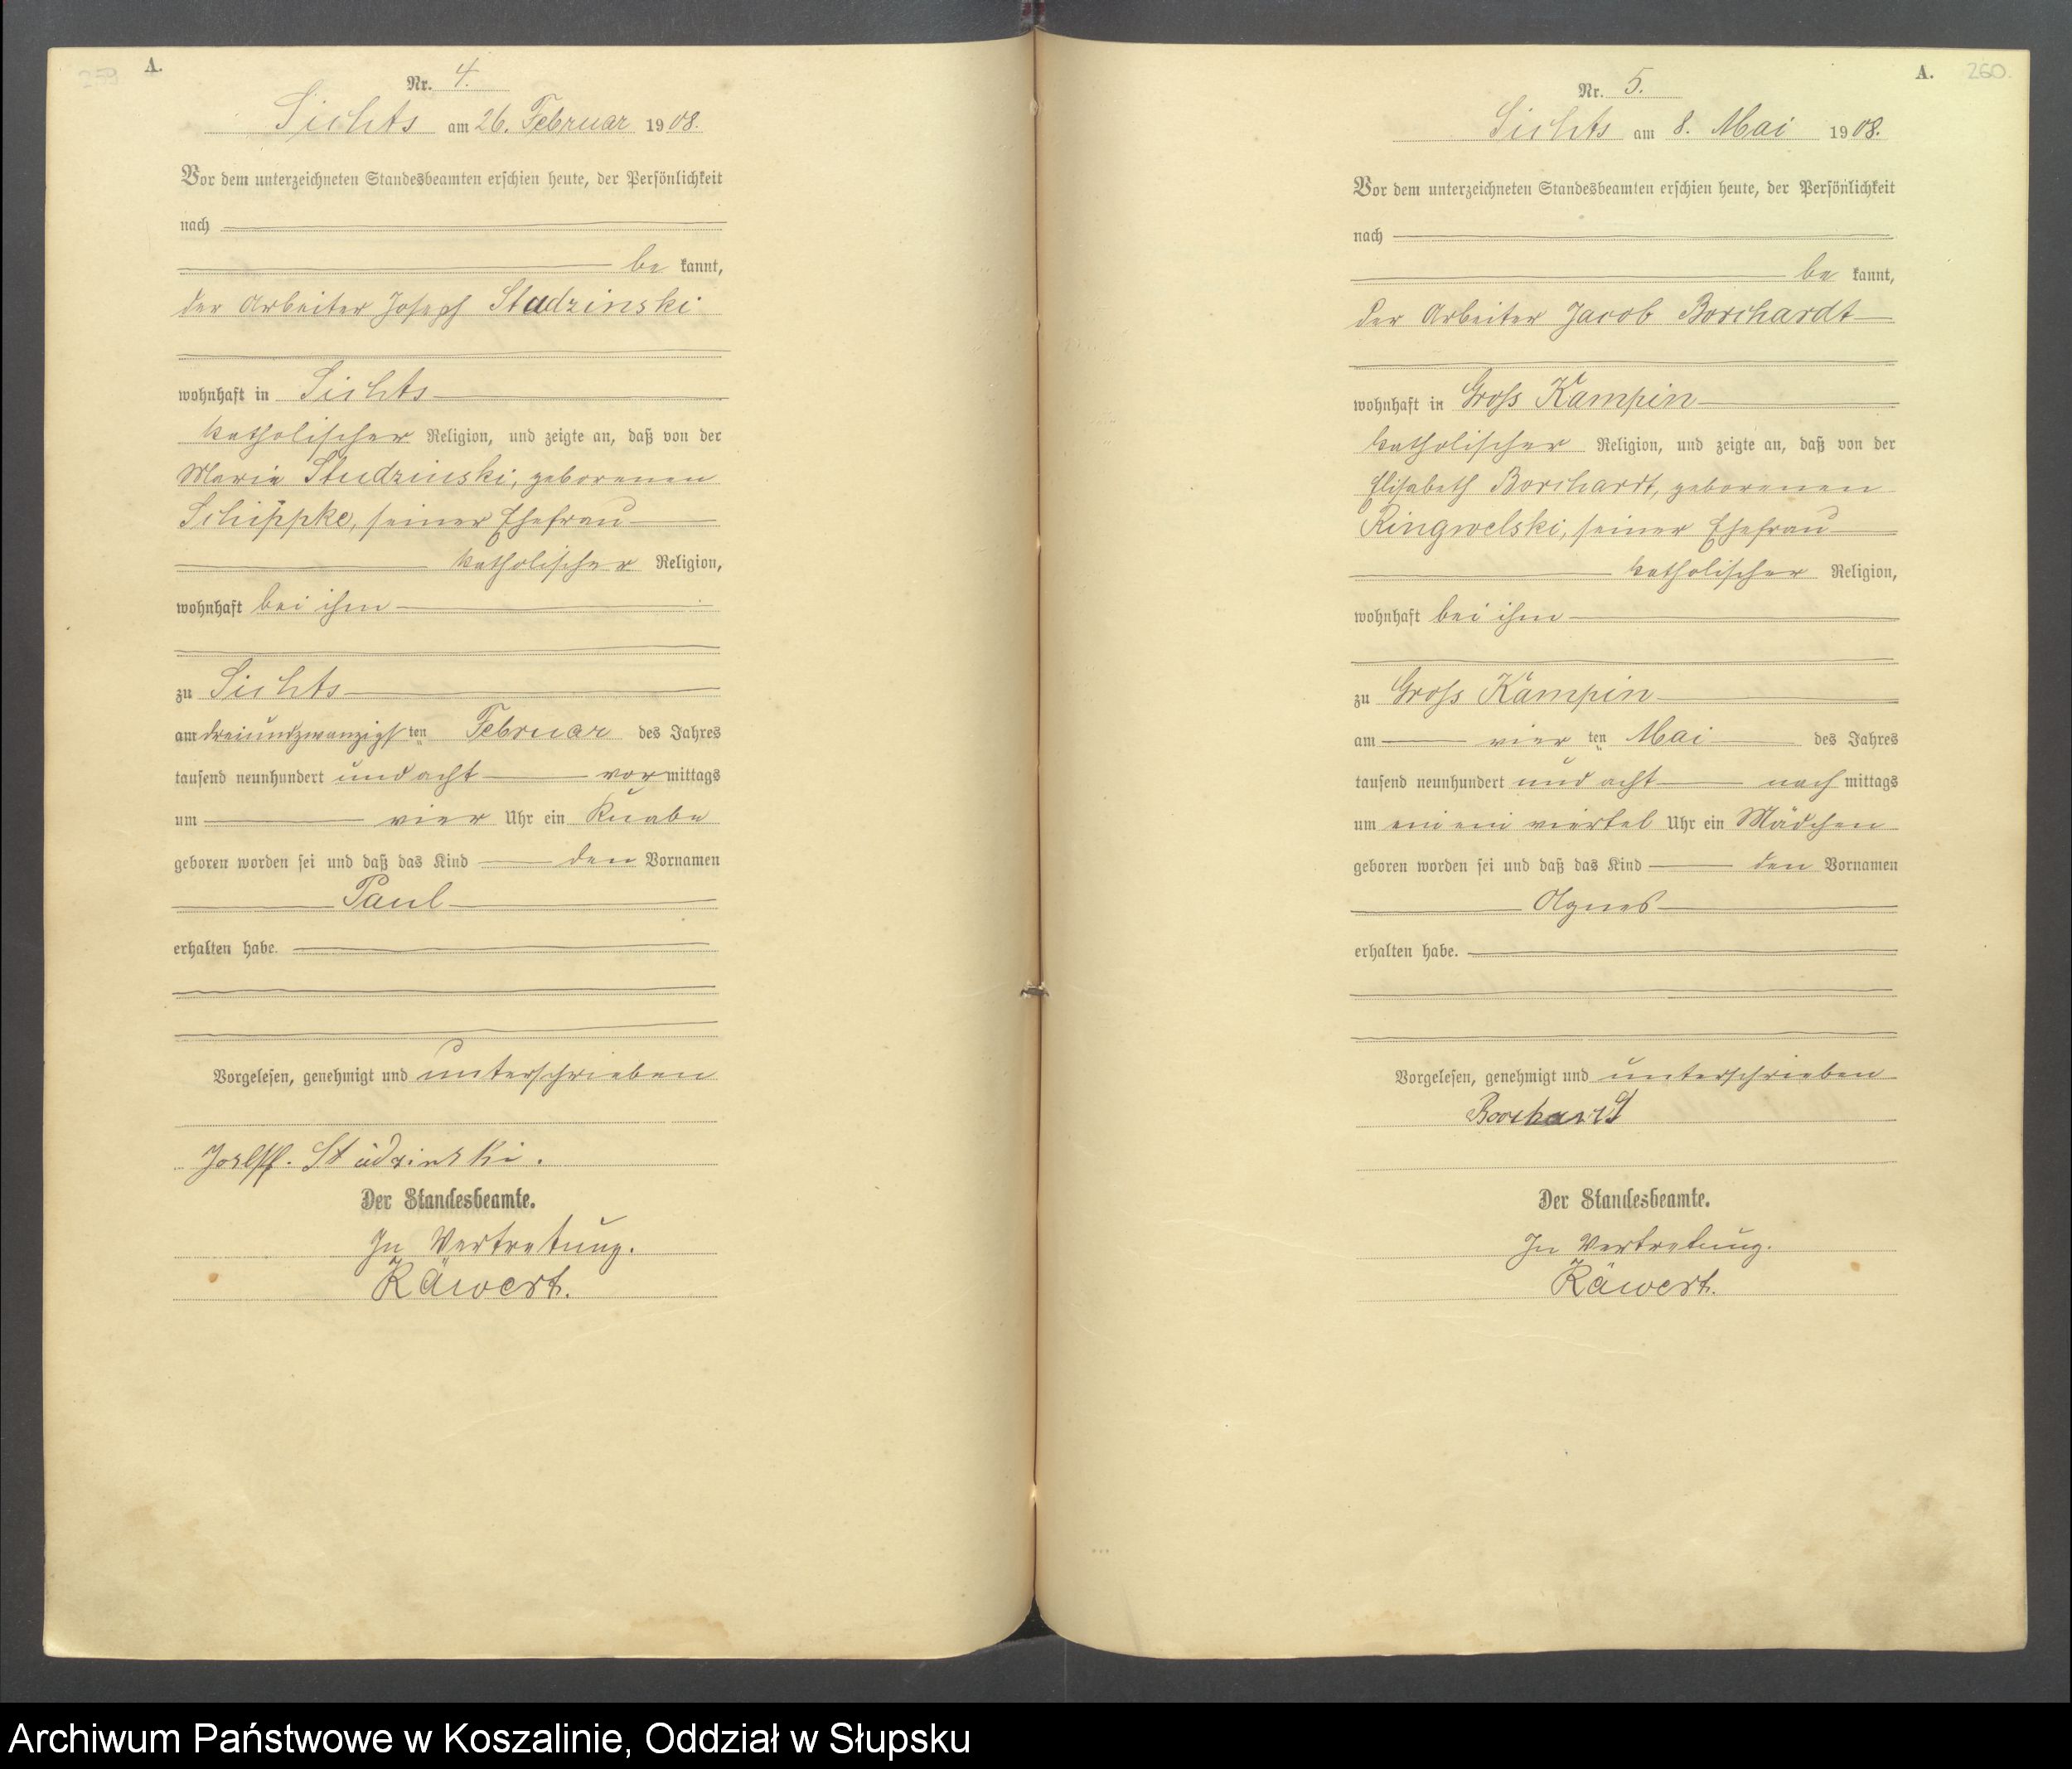 259
A.
Nr. 4.
Sichts am 26. Februar 1908.
Vor dem unterzeichneten Standesbeamten erschien heute, der Persönlichkeit
nach
be kannt,
der Arbeiter Joseph Studzinski
wohnhaft in Sichts
katholischer Religion, und zeigte an, daß von der
Maria Studzinski, geborenen
Schippke, seiner Ehefrau
katholischer Religion,
wohnhaft bei ihm
zu Sichts
am dreiundzwanzigsten Februar des Jahres
tausend neunhundert und acht vormittags
um vier Uhr ein Knabe
geboren worden sei und daß das Kind den Vornamen
Paul
erhalten habe.
Vorgelesen, genehmigt und unterschrieben
Joseph. Studzinski.
Der Standesbeamte.
In Vertretung.
Käwert.
A. 260.
Nr. 5.
Sichts am 8. Mai 1908.
Vor dem unterzeichneten Standesbeamten erschien heute, der Persönlichkeit
nach
be kannt,
der Arbeiter Jacob Borchardt
wohnhaft in Gross Kämpin
katholischer Religion, und zeigte an, daß von der
Elisabeth Borchardt, geborenen
Ringwelski, seiner Ehefrau
katholischer Religion,
wohnhaft bei ihm
zu Gross Kämpin
am vierten Mai des Jahres
tausend neunhundert und acht nachmittags
um viertel Uhr ein Mädchen
geboren worden sei und daß das Kind den Vornamen
Agnes
erhalten habe.
Vorgelesen, genehmigt und unterschrieben
Borchardt
Der Standesbeamte.
In Vertretung.
Käwert.
Archiwum Państwowe w Koszalinie, Oddział w Słupsku